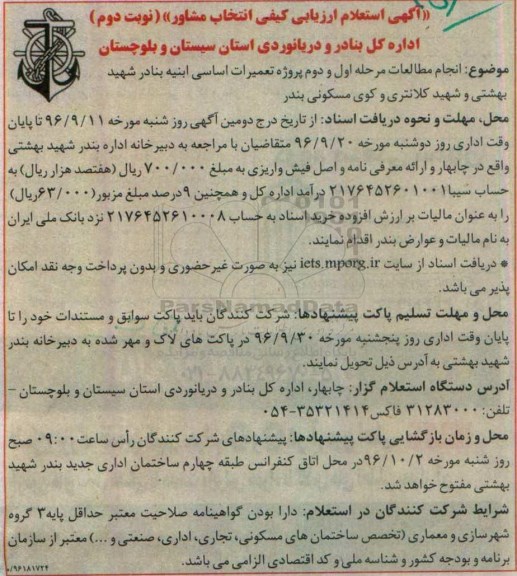 «آگهی استعلام ارزیابی کیفی انتخاب مشاور» (نوبت دوم)
اداره کل بنادر و دریانوردی استان سیستان و بلوچستان
موضوع: انجام مطالعات مرحله اول و دوم پروژه تعمیرات اساسی ابنیه بنادر شهید
بهشتی و شهید کلانتری و کوی مسکونی بندر
محل، مهلت و نحوه دریافت اسناد: از تاریخ درج دومین آگهی روز شنبه مورخه ۹۶/۹/۱۱ تا پایان
وقت اداری روز دوشنبه مورخه ۹۶/۹/۲۰ متقاضیان با مراجعه به دبیرخانه اداره بندر شهید بهشتی
واقع در چابهار و ارائه معرفی نامه و اصل فیش واریزی به مبلغ ۷۰۰/۰۰۰ ریال (هفتصد هزار ریال) به
حساب سیبا ۲۱۷۶۴۵۲۶۰۱۰۰۱ درآمد اداره کل و همچنین ۹درصد مبلغ مزبور (۶۳/۰۰۰ریال)
را به عنوان مالیات بر ارزش افزوده خرید اسناد به حساب ۲۱۷۶۴۵۲۶۱۰۰۰۸ نزد بانک ملی ایران
به نام مالیات و عوارض بندر اقدام نمایند.
● دریافت اسناد از سایت iets.mporg.ir نیز به صورت غیرحضوری و بدون پرداخت وجه نقد امکان
پذیر می باشد.
محل و مهلت تسلیم پاکت پیشنهادها: شرکت کنندگان باید پاکت سوابق و مستندات خود را تا
پایان وقت اداری روز پنجشنبه مورخه ۹۶/۹/۳۰ در پاکت های لاک و مهر شده به دبیرخانه بندر
شهید بهشتی به آدرس ذیل تحویل نمایند.
آدرس دستگاه استعلام گزار: چابهار، اداره کل بنادر و دریانوردی استان سیستان و بلوچستان –
تلفن: ۳۱۲۸۳۰۰۰ فاکس ۳۵۳۲۱۴۱۴-۰۵۴
محل و زمان بازگشایی پاکت پیشنهادها: پیشنهادهای شرکت کنندگان رأس ساعت ۰۹:۰۰ صبح
روز شنبه مورخه ۹۶/۱۰/۲ در محل اتاق کنفرانس طبقه چهارم ساختمان اداری جدید بندر شهید
بهشتی مفتوح خواهد شد.
شرایط شرکت کنندگان در استعلام: دارا بودن گواهینامه صلاحیت معتبر حداقل پایه۳ گروه
شهرسازی و معماری (تخصص ساختمان های مسکونی، تجاری، اداری، صنعتی و ...) معتبر از سازمان
برنامه و بودجه کشور و شناسه ملی و کد اقتصادی الزامی می باشد.
۹۶۱۸۱۷۲۴/
ParsNamadData